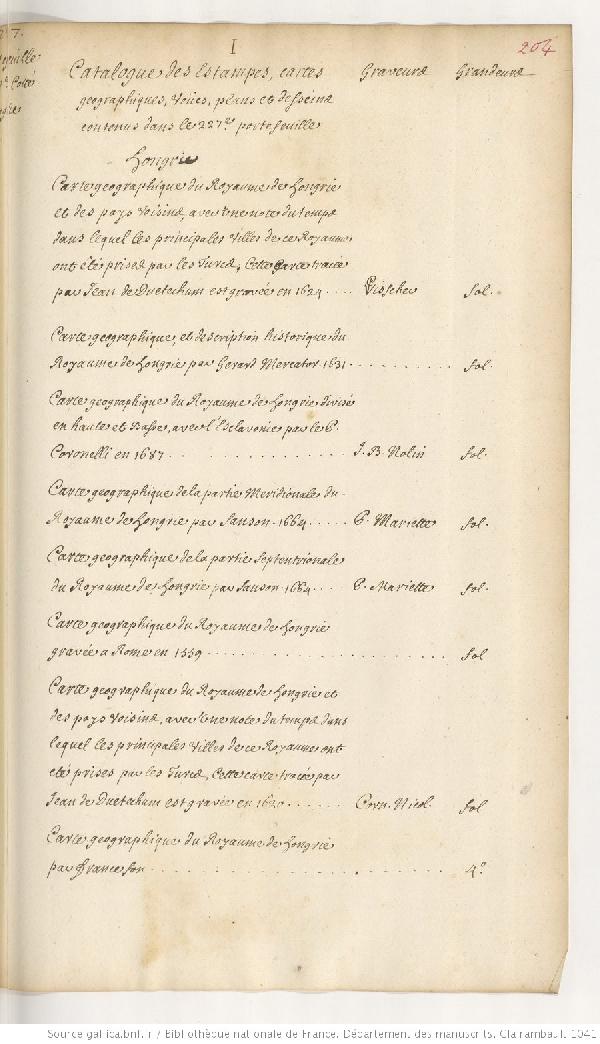 I
204
Catalogue des Estampes, cartes Graveurs Grandeurs
geographiques, Vües, plans et desseins
contenus dans le 227.e portefeuille
Hongrie
Carte geographique du Royaume de Hongrie
et des pays Voisins, avec Une note du temps
dans lequel les principales Villes de ce Royaume
ont été prises par les Turcs, Cette Carte tracée
par Jean de Duetechum est gravée en 1624 .... Visscher fol.
Carte geographique, et description historique du
Royaume de Hongrie par Gerard Mercator 1631 .......... fol.
Carte geographique du Royaume de Hongrie divisé
en haute et Basse, avec l'Esclavonie par le P.
Coronelli en 1687 .......... J. B. Nolin fol.
Carte geographique de la partie Meridionale du
Royaume de Hongrie par Sanson 1664 ..... P. Mariette fol.
Carte geographique de la partie Septentrionale
du Royaume de Hongrie par Sanson 1664 .... P. Mariette fol.
Carte geographique du Royaume de Hongrie
gravée a Rome en 1559 .......... fol
Carte geographique du Royaume de Hongrie et
des pays Voisins, avec Une note du temps dans
lequel les principales Villes de ce Royaume ont
eté prises par les Turcs, Cette carte tracée par
Jean de Duetechum est gravée en 1620 ...... Corn. Nicol. fol
Carte geographique du Royaume de Hongrie
par .......... 4.o
Source gallica.bnf.fr / Bibliothèque nationale de France. Département des manuscrits. Clairambault 1041